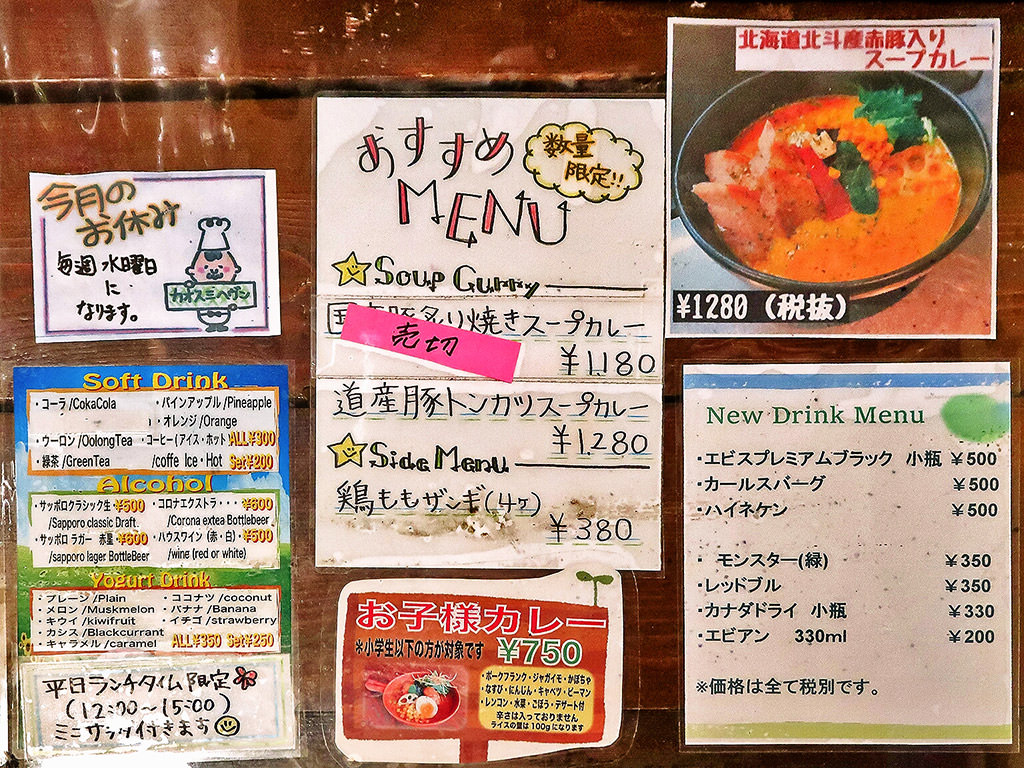 今月の
お休み
毎週水曜日
に
なります。
カオスヘヴン
Soft Drink
・コーラ/CokaCola
・パインアップル/Pineapple
・オレンジ/Orange
・ウーロン/OolongTea
・コーヒー(アイス・ホット
ALL¥300
・緑茶/GreenTea
/coffe Ice・Hot
Set¥200
Alcohol
・サッポロクラシック生 ¥500
/Sapporo classic Draft.
・コロナエクストラ・・・ ¥600
/Corona extea Bottlebeer
・サッポロ ラガー 赤星 ¥600
/sapporo lager BottleBeer
・ハウスワイン (赤・白)・¥500
/wine (red or white)
Yogurt Drink
・プレーン/Plain
・ココナツ/coconut
・メロン/Muskmelon
・バナナ/Banana
・キウイ/kiwifruit
・イチゴ/strawberry
・カシス/Blackcurrant
・キャラメル/caramel
ALL¥350 Set¥250
平日ランチタイム限定
(12:00〜15:00)
ミニサラダ付きます
おすすめ
MENU
数量
限定!!
Soup Curry
国産豚炙り焼きスープカレー
売切
¥1180
道産豚トンカツスープカレー
¥1,280
Side Menu
鶏ももザンギ(4ヶ)
¥380
お子様カレー
※小学生以下の方が対象です
¥750
・ポークフランク・ジャガイモ・かぼちゃ
・なすび・にんじん・キャベツ・ピーマン
・レンコン・水菜・ごぼう・デザート付
辛さは入っておりません
ライスの量は100gになります
北海道北斗産赤豚入り
スープカレー
¥1280(税抜)
New Drink Menu
・エビスプレミアムブラック 小瓶 ¥500
・カールスバーグ ¥500
・ハイネケン ¥500
・モンスター(緑) ¥350
・レッドブル ¥350
・カナダドライ 小瓶 ¥330
・エビアン 330ml ¥200
※価格は全て税別です。